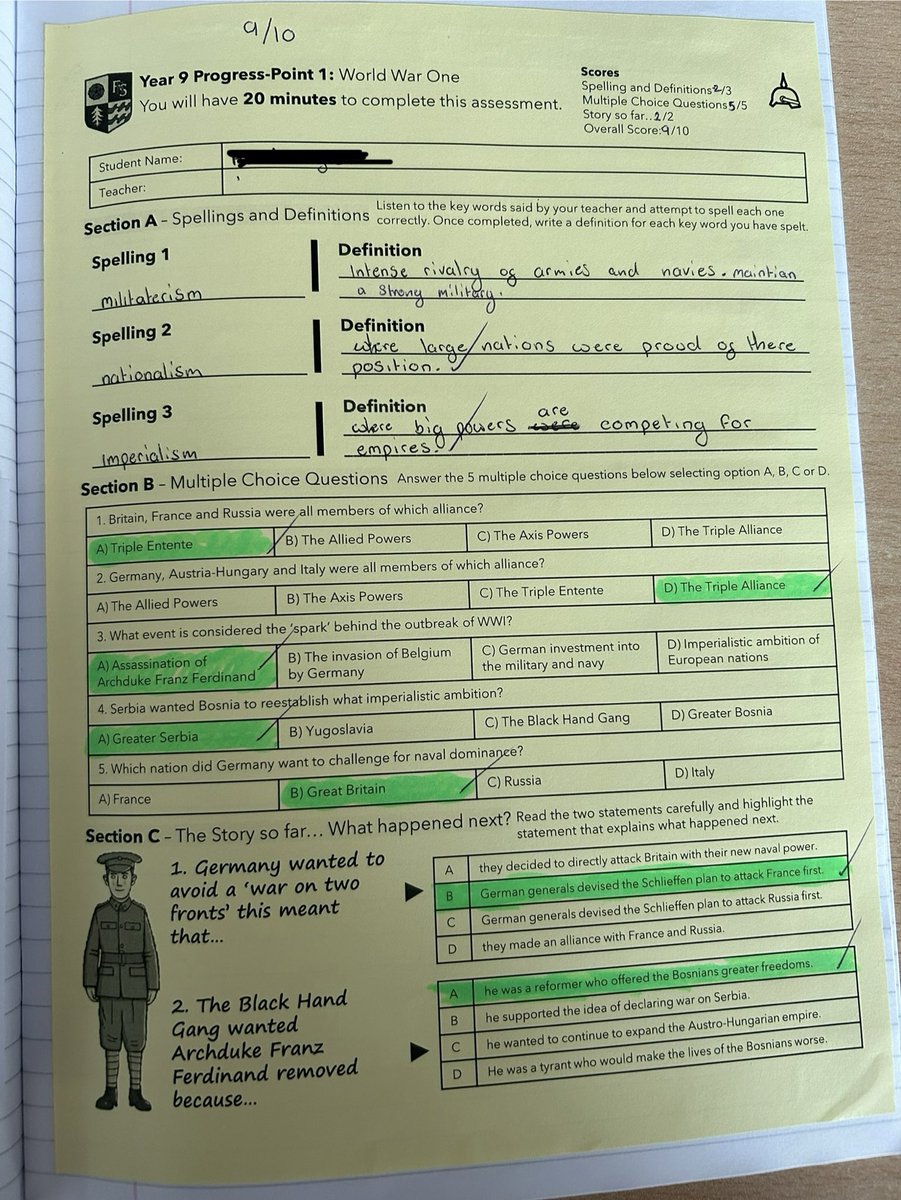 9/10
Year 9 Progress-Point 1: World War One
You will have 20 minutes to complete this assessment.
Scores
Spelling and Definitions 2/3
Multiple Choice Questions 5/5
Story so far.. 2/2
Overall Score: 9/10
FS
Student Name:
Teacher:
Section A – Spellings and Definitions
Listen to the key words said by your teacher and attempt to spell each one
correctly. Once completed, write a definition for each key word you have spelt.
Spelling 1
militaterism
Definition
Intense rivalry of armies and navies. maintian
a strong military.
Spelling 2
nationalism
Definition
where large nations were proud of there
position.
Spelling 3
Imperialism
Definition
where big powers were are competing for
empires.
Section B – Multiple Choice Questions Answer the 5 multiple choice questions below selecting option A, B, C or D.
1. Britain, France and Russia were all members of which alliance?
A) Triple Entente
B) The Allied Powers
C) The Axis Powers
D) The Triple Alliance
2. Germany, Austria-Hungary and Italy were all members of which alliance?
A) The Allied Powers
B) The Axis Powers
C) The Triple Entente
D) The Triple Alliance
3. What event is considered the 'spark' behind the outbreak of WWI?
A) Assassination of
Archduke Franz Ferdinand
B) The invasion of Belgium
by Germany
C) German investment into
the military and navy
D) Imperialistic ambition of
European nations
4. Serbia wanted Bosnia to reestablish what imperialistic ambition?
A) Greater Serbia
B) Yugoslavia
C) The Black Hand Gang
D) Greater Bosnia
5. Which nation did Germany want to challenge for naval dominance?
A) France
B) Great Britain
C) Russia
D) Italy
Section C – The Story so far... What happened next? Read the two statements carefully and highlight the
statement that explains what happened next.
1. Germany wanted to
avoid a 'war on two
fronts' this meant
that...
A they decided to directly attack Britain with their new naval power.
B German generals devised the Schlieffen plan to attack France first.
C German generals devised the Schlieffen plan to attack Russia first.
D they made an alliance with France and Russia.
2. The Black Hand
Gang wanted
Archduke Franz
Ferdinand removed
because...
A he was a reformer who offered the Bosnians greater freedoms.
B he supported the idea of declaring war on Serbia.
C he wanted to continue to expand the Austro-Hungarian empire.
D He was a tyrant who would make the lives of the Bosnians worse.